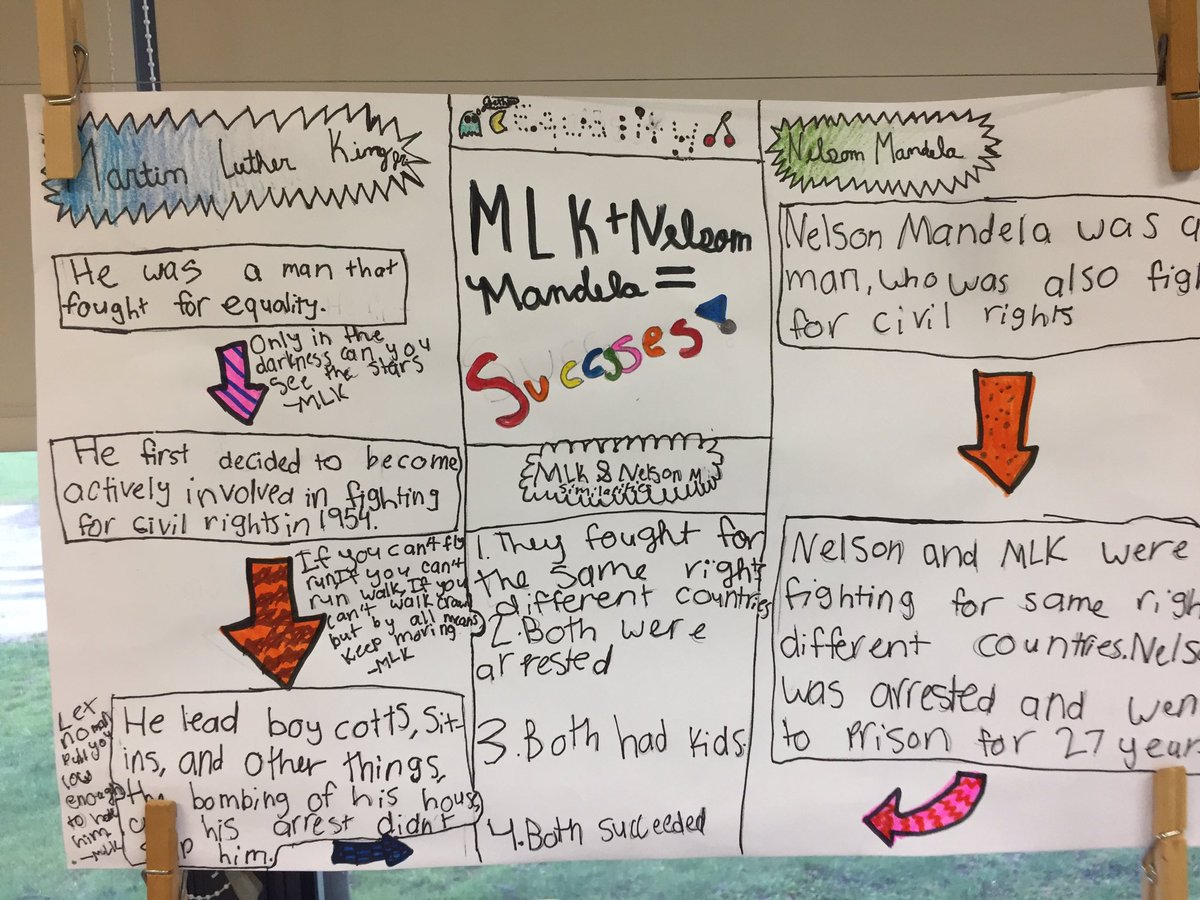 Martin Luther King Jr.
He was a man that
fought for equality.
Only in the
darkness can you
see the stars
-MLK
He first decided to become
actively involved in fighting
for civil rights in 1954.
If you can't fly
run If you can't
run walk, If you
can't walk crawl
but by all means
Keep moving
-MLK
Let
no man
pull you
low
enough
to hate
him
-MLK
He lead boycotts, sit-
ins, and other things,
the bombing of his house,
his arrest didn't
him.
Equality
MLK + Nelson
Mandela =
Success!
MLK & Nelson M
Similarities
1. They fought for
the same right
different countries
2. Both were
arrested
3. Both had kids
4. Both succeeded
Nelson Mandela
Nelson Mandela was a
man, who was also figh
for civil rights
Nelson and MLK were
fighting for same righ
different countries. Nels
was arrested and wen
to Prison for 27 year